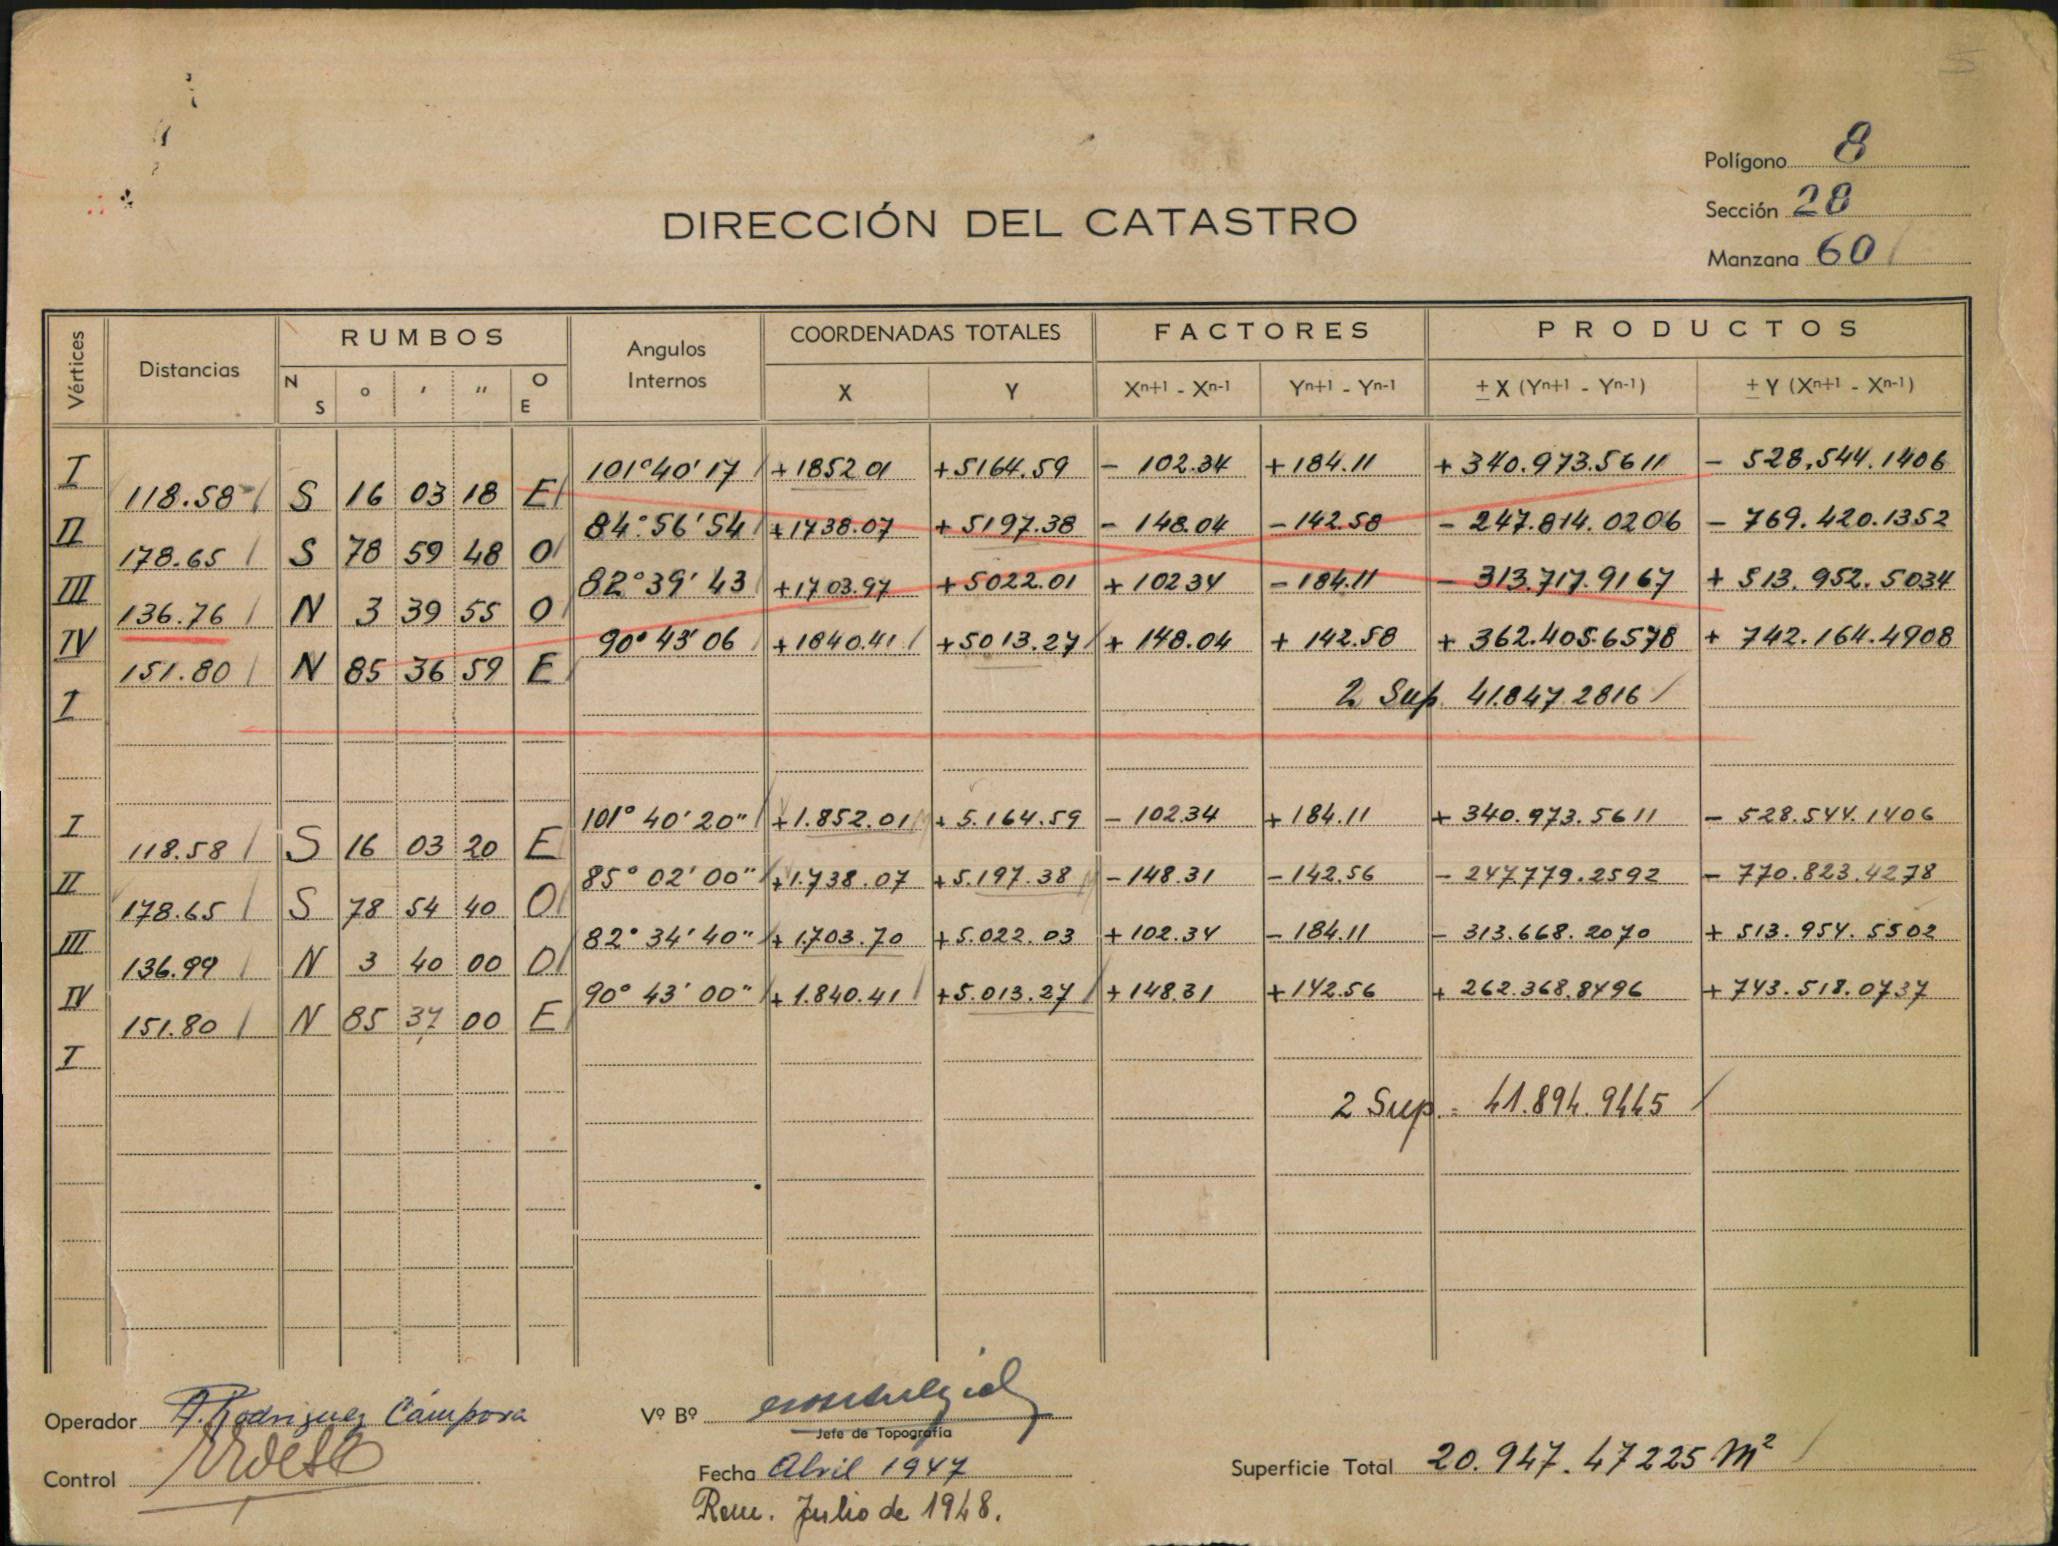 Polígono 8
Sección 28
Manzana 60
DIRECCIÓN DEL CATASTRO
Vértices Distancias RUMBOS Angulos Internos COORDENADAS TOTALES FACTORES PRODUCTOS
N S ° ' " O E X Y Xn+1 - Xn-1 Yn+1 - Yn-1 ± X (Yn+1 - Yn-1) ± Y (Xn+1 - Xn-1)
I 101°40'17 +1852.01 +5164.59 - 102.34 +184.11 + 340.973.5611 - 528.544.1406
118.58 S 16 03 18 E
II 84°56'54 +1738.07 + 5197.38 - 148.04 - 142.58 - 247.814.0206 - 769.420.1352
178.65 S 78 59 48 O
III 82°39'43 +1703.97 + 5022.01 + 10234 - 184.11 - 313.717.9167 + 513.952.5034
136.76 N 3 39 55 O
IV 90°43'06 +1840.41 +5013.27 + 148.04 + 142.58 + 362.405.6578 + 742.164.4908
151.80 N 85 36 59 E
I 2 Sup. 41.847.2816
I 101°40'20" +1.852.01 + 5.164.59 - 102.34 +184.11 + 340.973.5611 - 528.544.1406
118.58 S 16 03 20 E
II 85°02'00" +1.738.07 +5.197.38 - 148.31 - 142.56 - 247.779.2592 - 770.823.4278
178.65 S 78 54 40 O
III 82°34'40" + 1.703.70 +5.022.03 + 102.34 - 184.11 - 313.668.2070 + 513.954.5502
136.99 N 3 40 00 O
IV 90°43'00" + 1.840.41 +5.013.27 +148.31 +142.56 + 262.368.8496 + 743.518.0737
151.80 N 85 37 00 E
I
2 Sup. = 41.894.9445
Operador A. Rodriguez Cámpora Vº Bº
Jefe de Topografía
Control Fecha Abril 1947 Superficie Total 20.947.47225 m²
Rem. Julio de 1948.